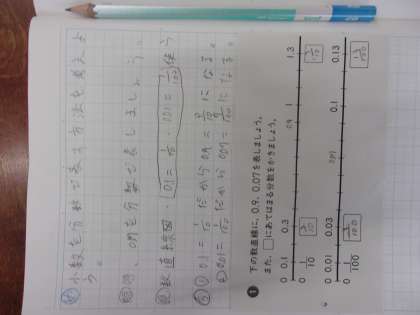 小数を分数で表す方法を考えよう。
0.9、0.07を分数で表しましょう。
数直線図 0.1=1/10 0.01=1/100 使う
① 0.1=1/10 だから 0.9=9/10 になる。
② 0.01=1/100 だから 0.07=7/100 になる。
1 下の数直線に、0.9、0.07を表しましょう。
また、□にあてはまる分数をかきましょう。
0 0.1 0.3 0.9 1 1.3
1/10 3/10 13/10
0 0.01 0.03 0.07 0.1 0.13
1/100 3/100 13/100